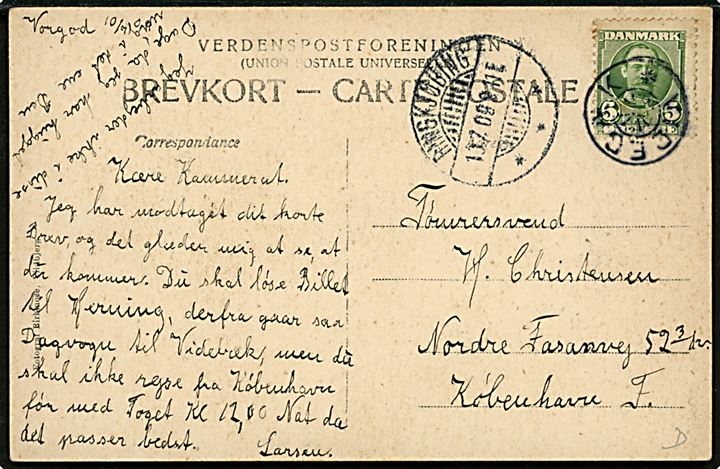 VERDENSPOSTFORENINGEN
(UNION POSTALE UNIVERSELLE)
BREVKORT — CARTE POSTALE
Correspondance
DANMARK
5 5
RINGKJØBING
Vorgod
Jeg ikke i disse
Dage, da jeg har
Kære Kammerat.
Jeg har modtaget dit korte
Brev, og det glæder mig at se, at
du kommer. Du skal løse Billet
til Herning, derfra gaar saa
Dagvogn til Videbæk, men du
skal ikke rejse fra København
før med Toget Kl 12,00 Nat da
det passer bedst.
Larsen.
Tømrersvend
H. Christensen
Nordre Fasanvej 52 3
København F.
D